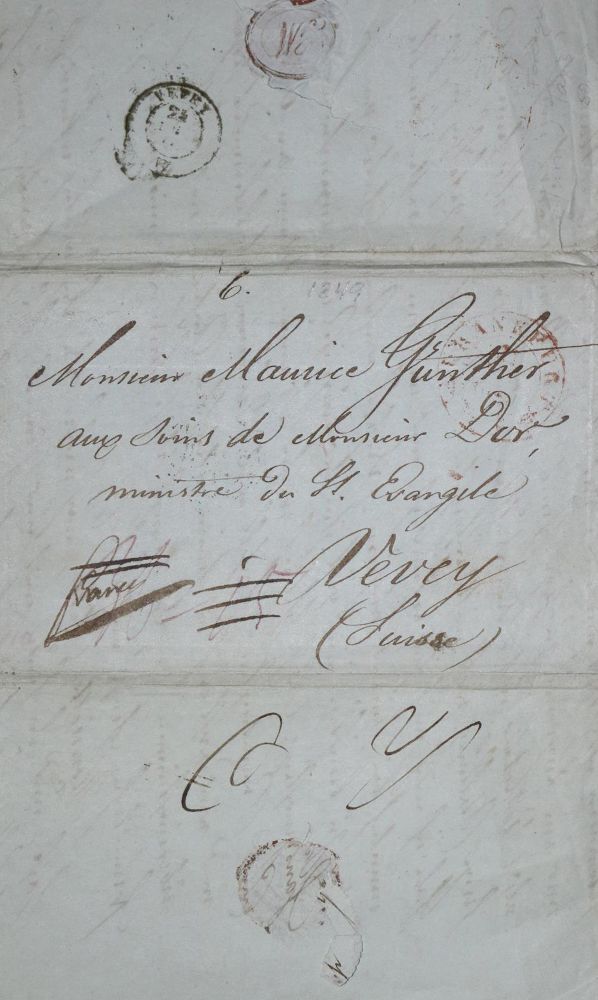 VEVEY
22
6.
1849
Monsieur Maurice Günther
aux soins de Monsieur Dor,
ministre du St. Evangile
franco
Vevey
(Suisse)